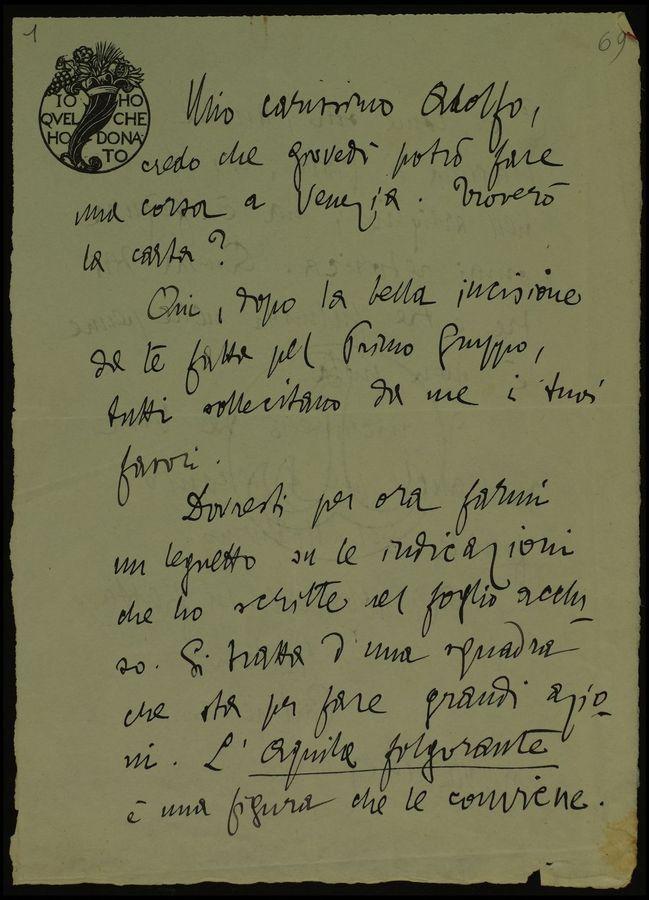 1
69
IO HO
QVEL CHE
HO DONA
TO
Mio carissimo Adolfo,
credo che giovedì potrò fare
una corsa a Venezia. Troverò
la carta?
Qui, dopo la bella incisione
da te fatta pel Primo Gruppo,
tutti sollecitano da me i tuoi
favori.
Dovresti per ora farmi
un legnetto su le indicazioni
che ho scritte nel foglio acclu
so. Si tratta d'una squadra
che sta per fare grandi azio
ni. L'Aquila folgorante
è una figura che le conviene.